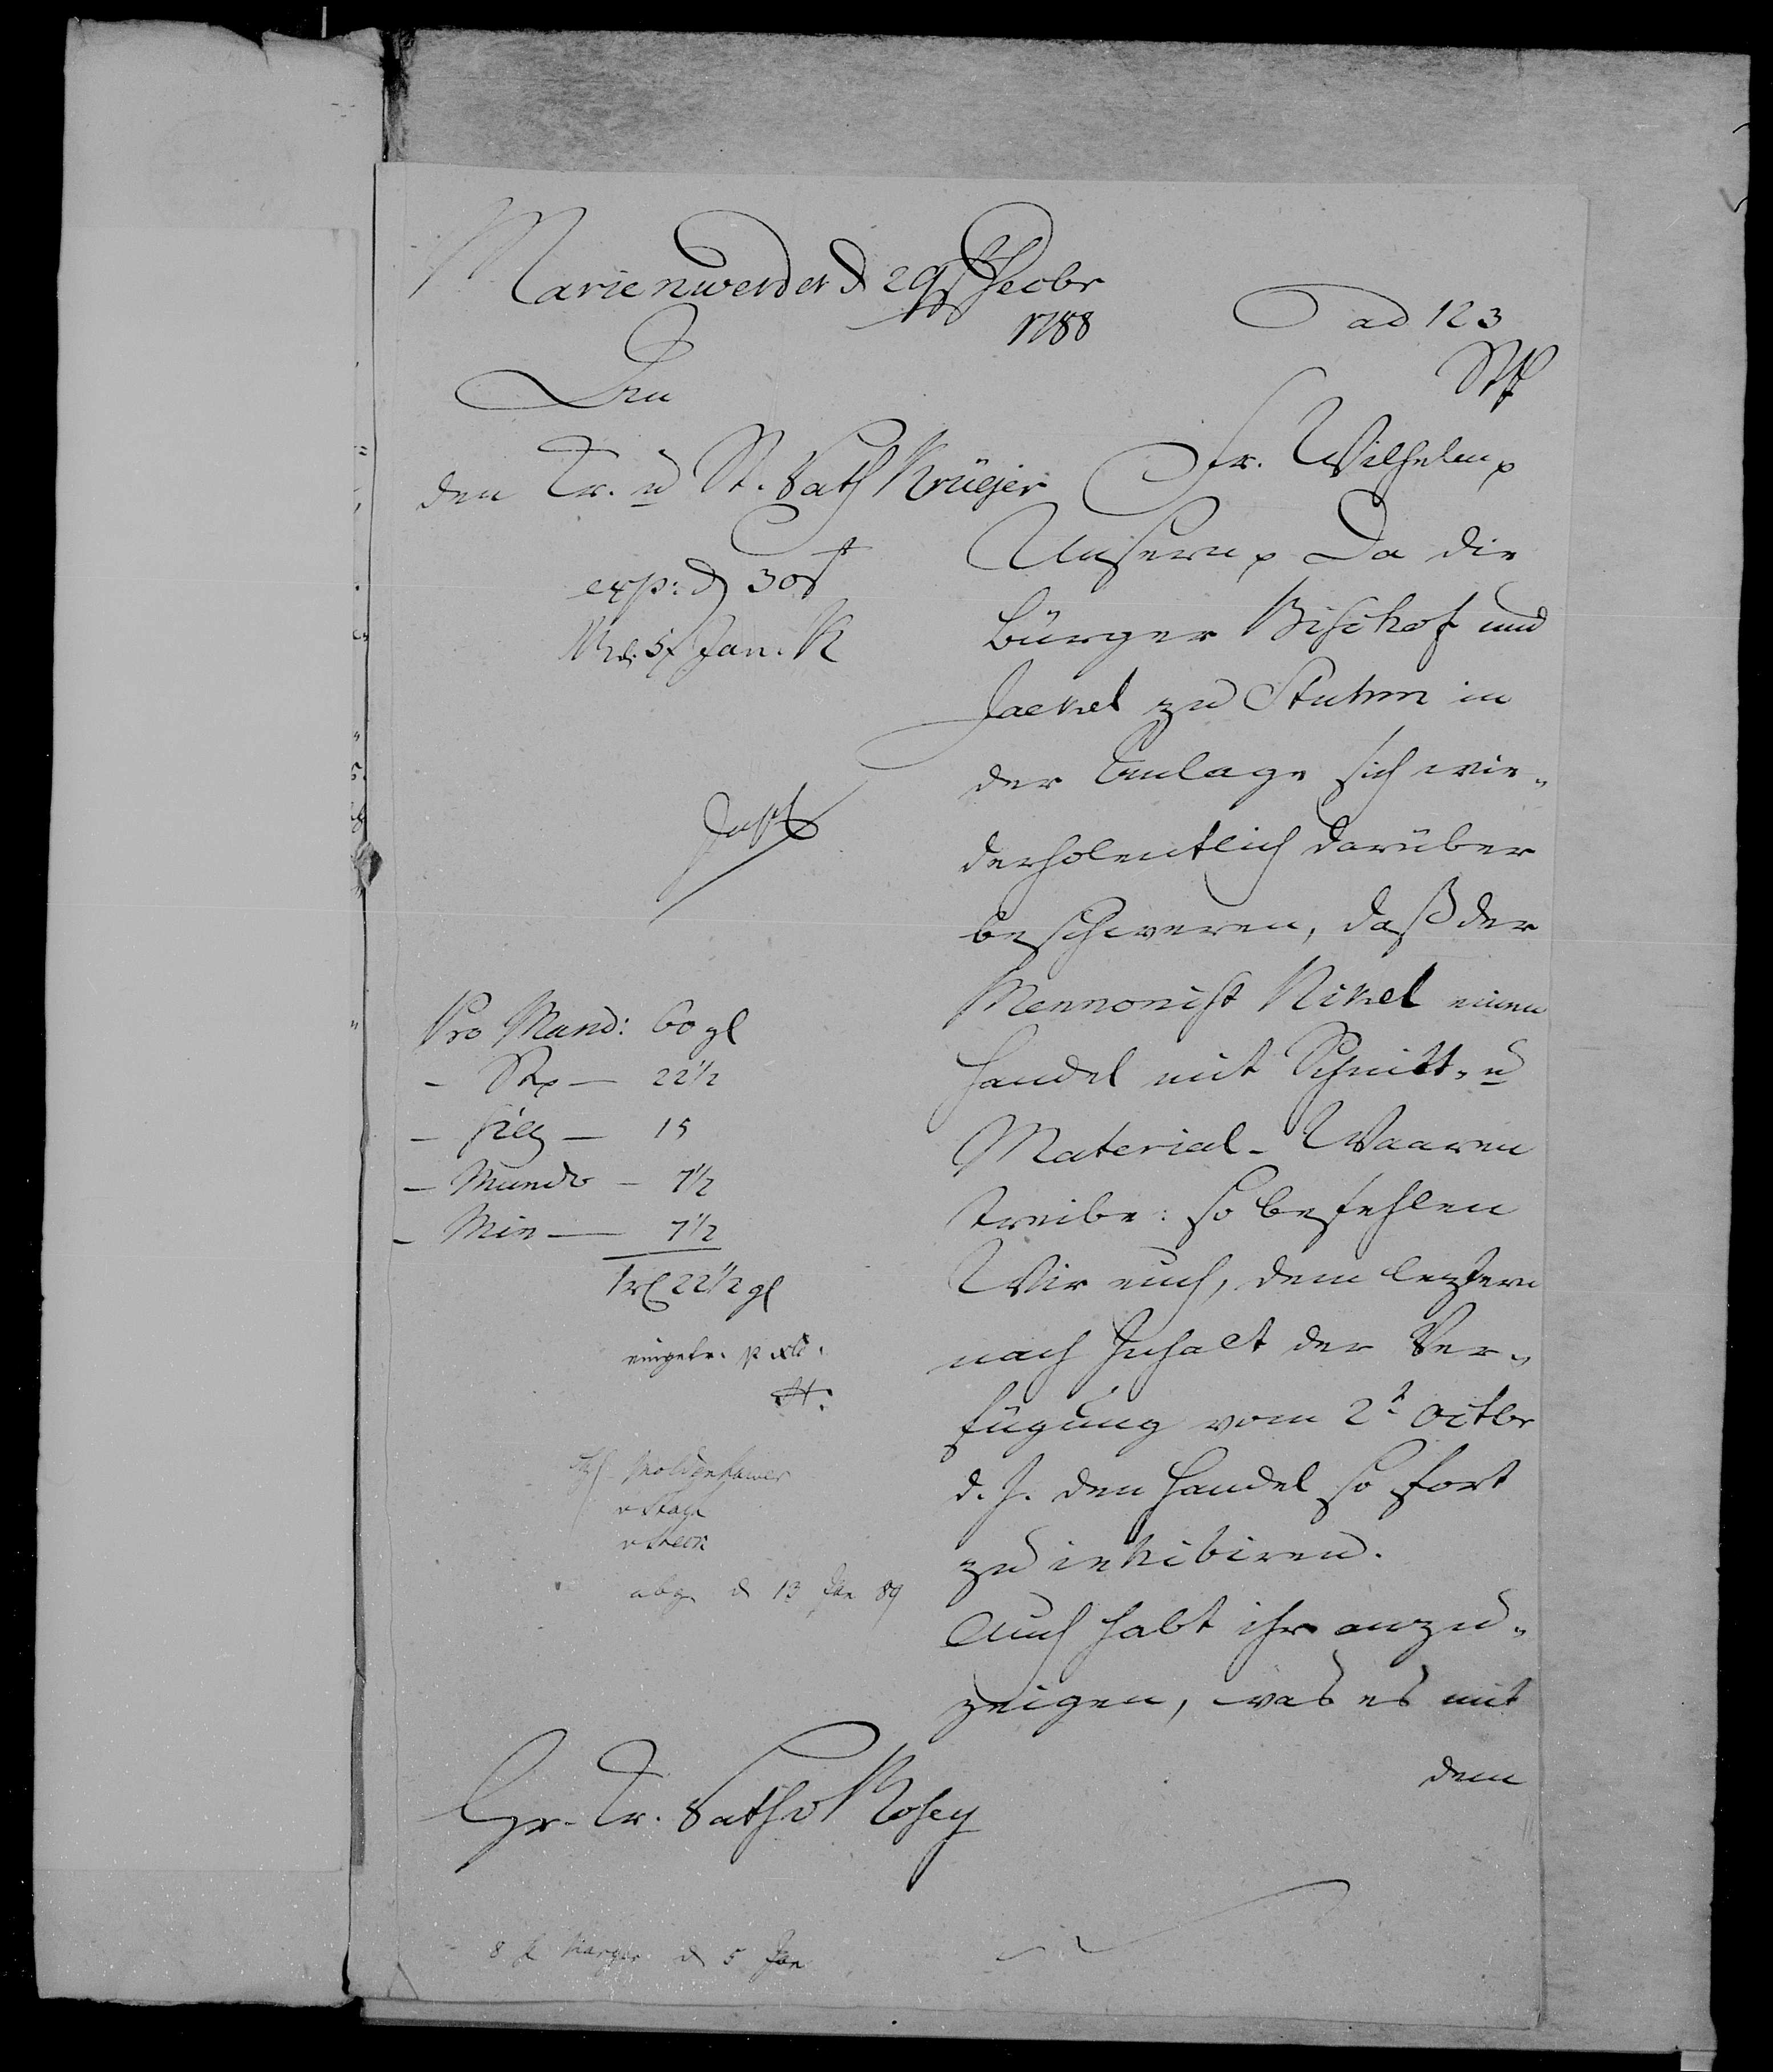 Marienwerder d 29 Decbr
1788
ad 123
An
den Kr. u St. Rath Krüger
Fr. Wilhelm p
exp: d 30
5 Jan. K
Unsern p Da die
Bürger Bischof und
Jaekel zu Stuhm in
der Anlage sich wie-
derholentlich darüber
beschweren, daß der
Mennonist Nikel einen
Handel mit Schnitt- u
Material-Waaren
treibe: so befehlen
Wir euch, dem leztern
nach Inhalt der Ver-
fügung vom 2t Octbr
d. J. den Handel so fort
zu inhibiren.
Auch habt ihr anzu-
zeigen, was es mit
dem
Pro Mand: 60 gl
- Stp — 22 1/2
- Sieg — 15
- Mundo — 7 1/2
- Min — 7 1/2
1 rl 22 1/2 gl
Moldenhawer
abg d 13 Jan 89
Hr. Kr. Rath v Rosey
d 5 Jan